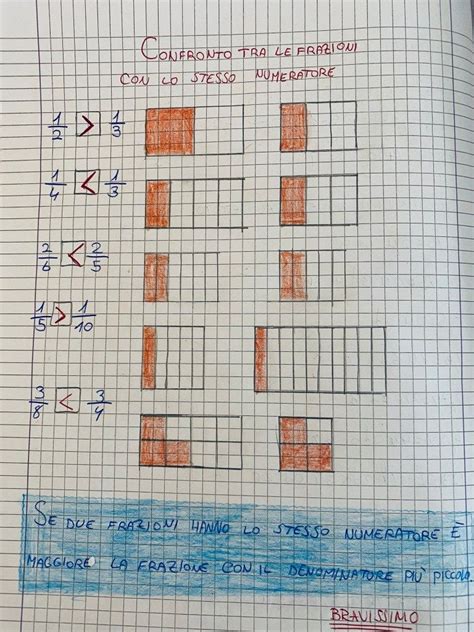 CONFRONTO TRA LE FRAZIONI
CON LO STESSO NUMERATORE
1/2 > 1/3
1/4 < 1/3
2/6 < 2/5
1/5 > 1/10
3/8 < 3/4
SE DUE FRAZIONI HANNO LO STESSO NUMERATORE È
MAGGIORE LA FRAZIONE CON IL DENOMINATORE PIÙ PICCOLO
BRAVISSIMO